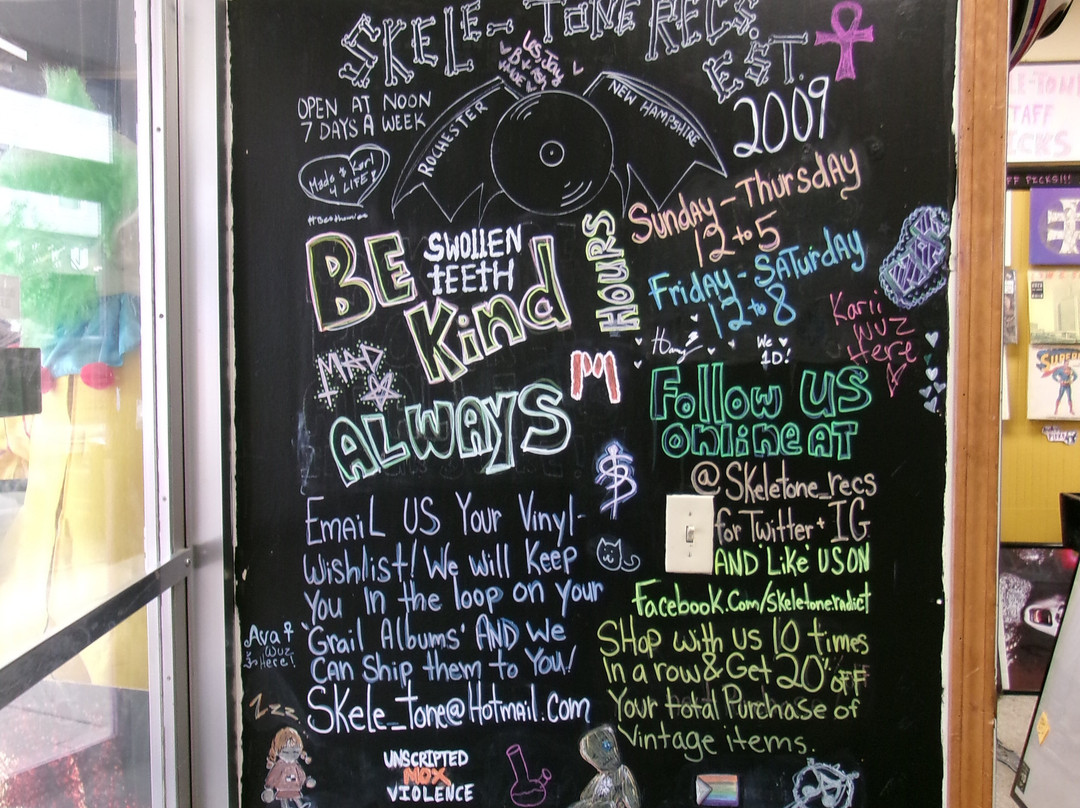 SKELE-TONE RECS
EST.
2009
OPEN AT NOON
7 DAYS A WEEK
ROCHESTER
NEW HAMPSHIRE
Made & Karl
4 LIFE!
BE
SWOLLEN
TEETH
Kind
MAD
ALWAYS
HOURS
SUNDAY - THURSDAY
12 to 5
FRIDAY - SATURDAY
12 to 8
Karii
WUZ
Here
We
1D!
M
Follow US
Online AT
@Skeletone_recs
for Twitter + IG
AND 'Like' US ON
Facebook.Com/Skeletonerxdict
Email US Your Vinyl-
Wishlist! We Will Keep
You In the loop on your
'Grail Albums' AND We
CAN Ship them to You!
Skele_Tone@Hotmail.com
Ava
Wuz
Here!
SHOP With US 10 times
In a row & Get 20% OFF
Your total Purchase of
Vintage items.
Zzz
UNSCRIPTED
MOX
VIOLENCE
SUPER